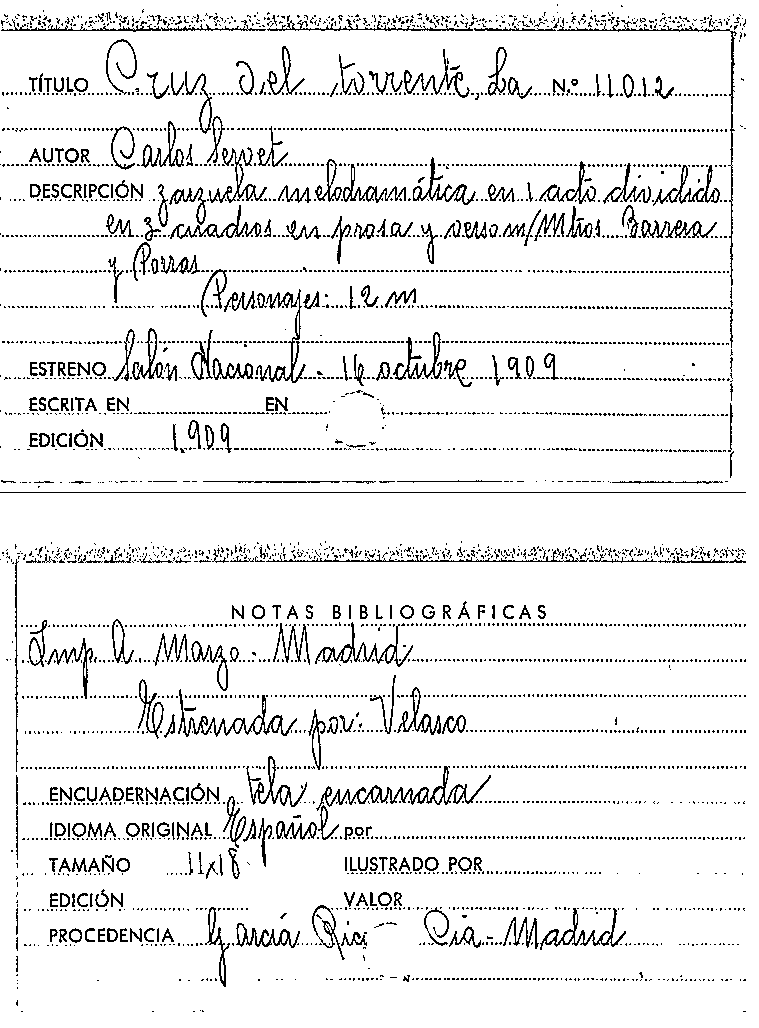 TÍTULO Cruz del torrente, La N.º 11012
AUTOR Carlos Servet
DESCRIPCIÓN zarzuela melodramática en 1 acto dividido
en 3 cuadros en prosa y verso m/Mtros Barrera
y Porras
Personajes: 12 m
ESTRENO Salón Nacional - 16 octubre 1909
ESCRITA EN EN
EDICIÓN 1.909
NOTAS BIBLIOGRÁFICAS
Imp. A. Marzo - Madrid
Estrenada por: Velasco
ENCUADERNACIÓN tela encarnada
IDIOMA ORIGINAL Español por
TAMAÑO 11x18 ILUSTRADO POR
EDICIÓN VALOR
PROCEDENCIA García Rico - Cía - Madrid